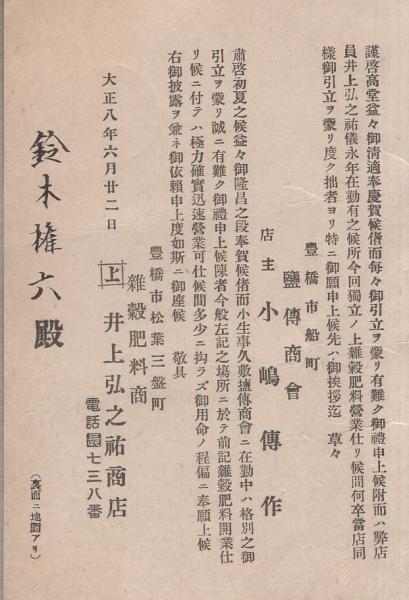 謹啓高堂益々御清適奉慶賀候偖而每々御引立ヲ蒙リ有難ク御禮申上候附而ハ弊店
員井上弘之祐儀永年在勤有之候所今回獨立ノ上雜穀肥料營業仕リ候間何卒當店同
樣御引立ヲ蒙リ度ク拙者ヨリ特ニ御願申上候先ハ御挨拶迄 草々
豊橋市船町
鹽傳商會
店主 小嶋傳作
肅啓初夏之候益々御隆昌之段奉賀候偖而小生事久敷鹽傳商會ニ在勤中ハ格別之御
引立ヲ蒙リ誠ニ有難ク御禮申上候陳者今般左記之場所ニ於テ前記雜穀肥料開業仕
リ候ニ付テハ極力確實迅速營業可仕候間多少ニ拘ラズ御用命ノ程偏ニ奉願上候
右御披露ヲ兼ネ御依賴申上度如斯ニ御座候 敬具
豊橋市松葉三盤町
雜穀肥料商
上 井上弘之祐商店
電話七三八番
大正八年六月廿二日
鈴木權六殿
(裏面ニ地圖アリ)